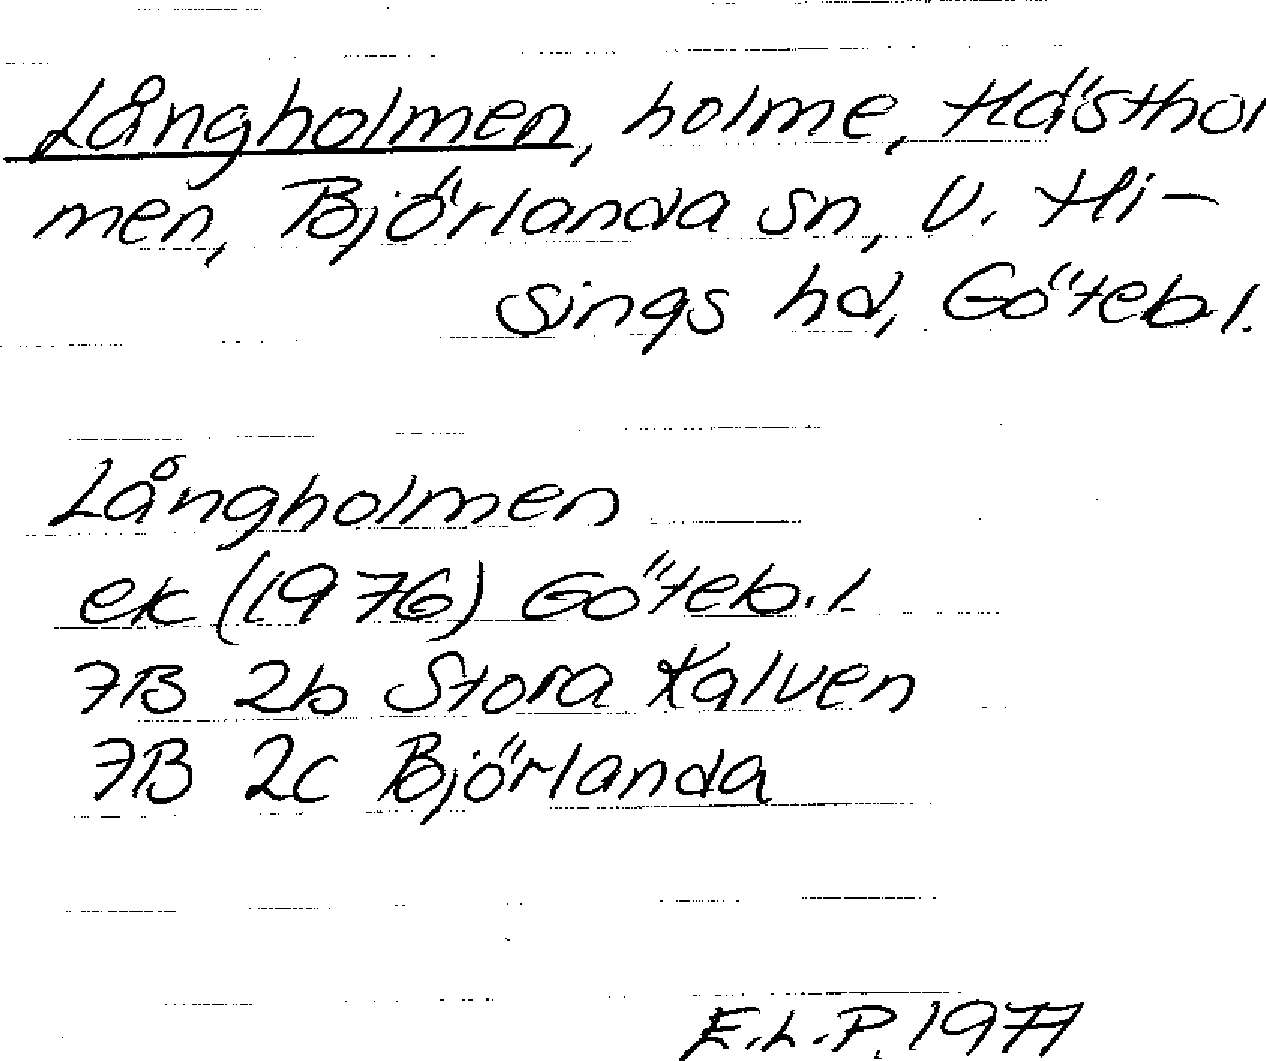 Långholmen, holme, Hästhol
men, Björlanda sn, V. Hi-
sings hd, Göteb.l.
Långholmen
ek (1976) Göteb.l.
7B 2b Stora Kalven
7B 2c Björlanda
E.L.P. 1977